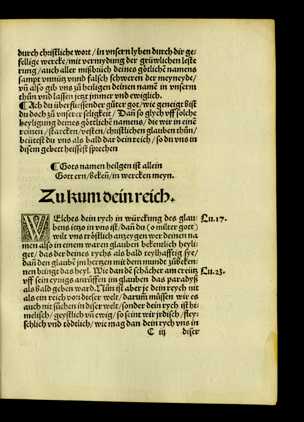 durch christliche wort / in vnsern lyben durch dir ge-
fellige wercke / mit vermydung der grüwlichen leste
rung / auch aller mißbüch deines götlichē namens
sampt vnnütz vnnd falsch schweren der meyneyde /
vñ also gib vns zů heiligen deinen namē in vnserm
thůn vnd lassen jetz immer vnd ewiglich.
¶ Ach du überfliessender güter got / wie geneigt bist
du doch zů vnserer seligkeit / Dan so glych vff solche
heyligung deines götlichen namens / die wir in einē
reinen / starcken / vesten / christlichen glauben thůn /
heütest du vns als bald dar dein reich / so du vns in
disem gebet heissest sprechen
¶ Gots namen heilgen ist allein
Gott ern / bekeñ / in wercken meyn.
Zů kum dein reich.
WElches dein rych in würckung des glau
bens itzo in vns ist / dañ du (o milter got)
wilt vns tröstlich anzeygen wer deinen na
men also in einem waren glauben bekentlich heyli-
get / das der deines rychs als bald teylhafftig sye /
dañ dein glauben jm hertzen mit dem mundt zů beken-
nen bringt das heyl. Wie dan dē schächer am creütz
vff sein eynigs anrüffen im glauben das paradyß
als bald geben ward. Nun ist aber je dein reych nit
als ein reich von diser welt / darumb müssen wir es
auch nit sůchen in diser welt / sonder dein rych ist hi-
melisch / geystlich vñ ewig / so seint wir jrdisch / fley-
schlich vnd tödtlich / wie mag dan dein rych vns in
C iij diser
Lu. 17.
Lu. 23.